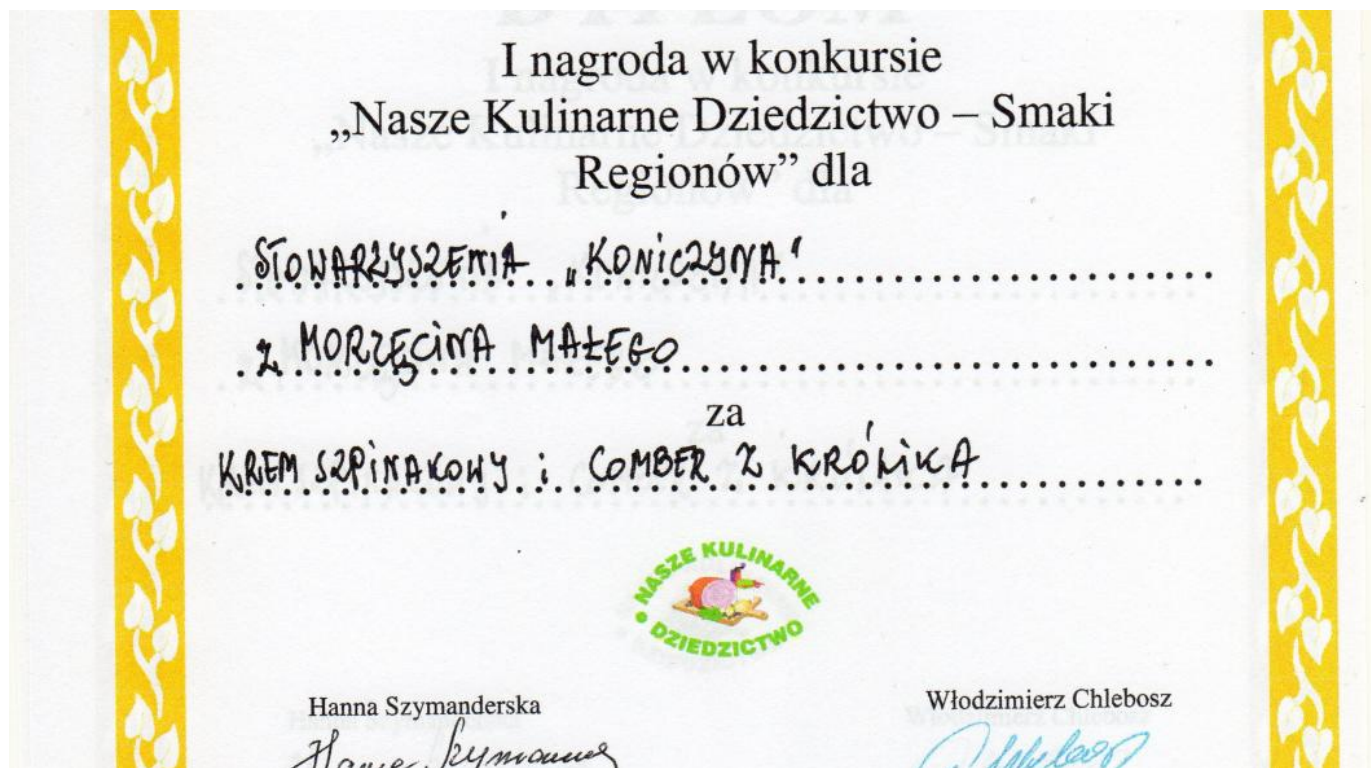 DYPLOM
I nagroda w konkursie
„Nasze Kulinarne Dziedzictwo – Smaki
Regionów” dla
STOWARZYSZENIA „KONICZYNA"
z MORZĘCINA MAŁEGO
za
KREM SZPINAKOWY i COMBER Z KRÓLIKA
NASZE KULINARNE
DZIEDZICTWO
Hanna Szymanderska
Włodzimierz Chlebosz